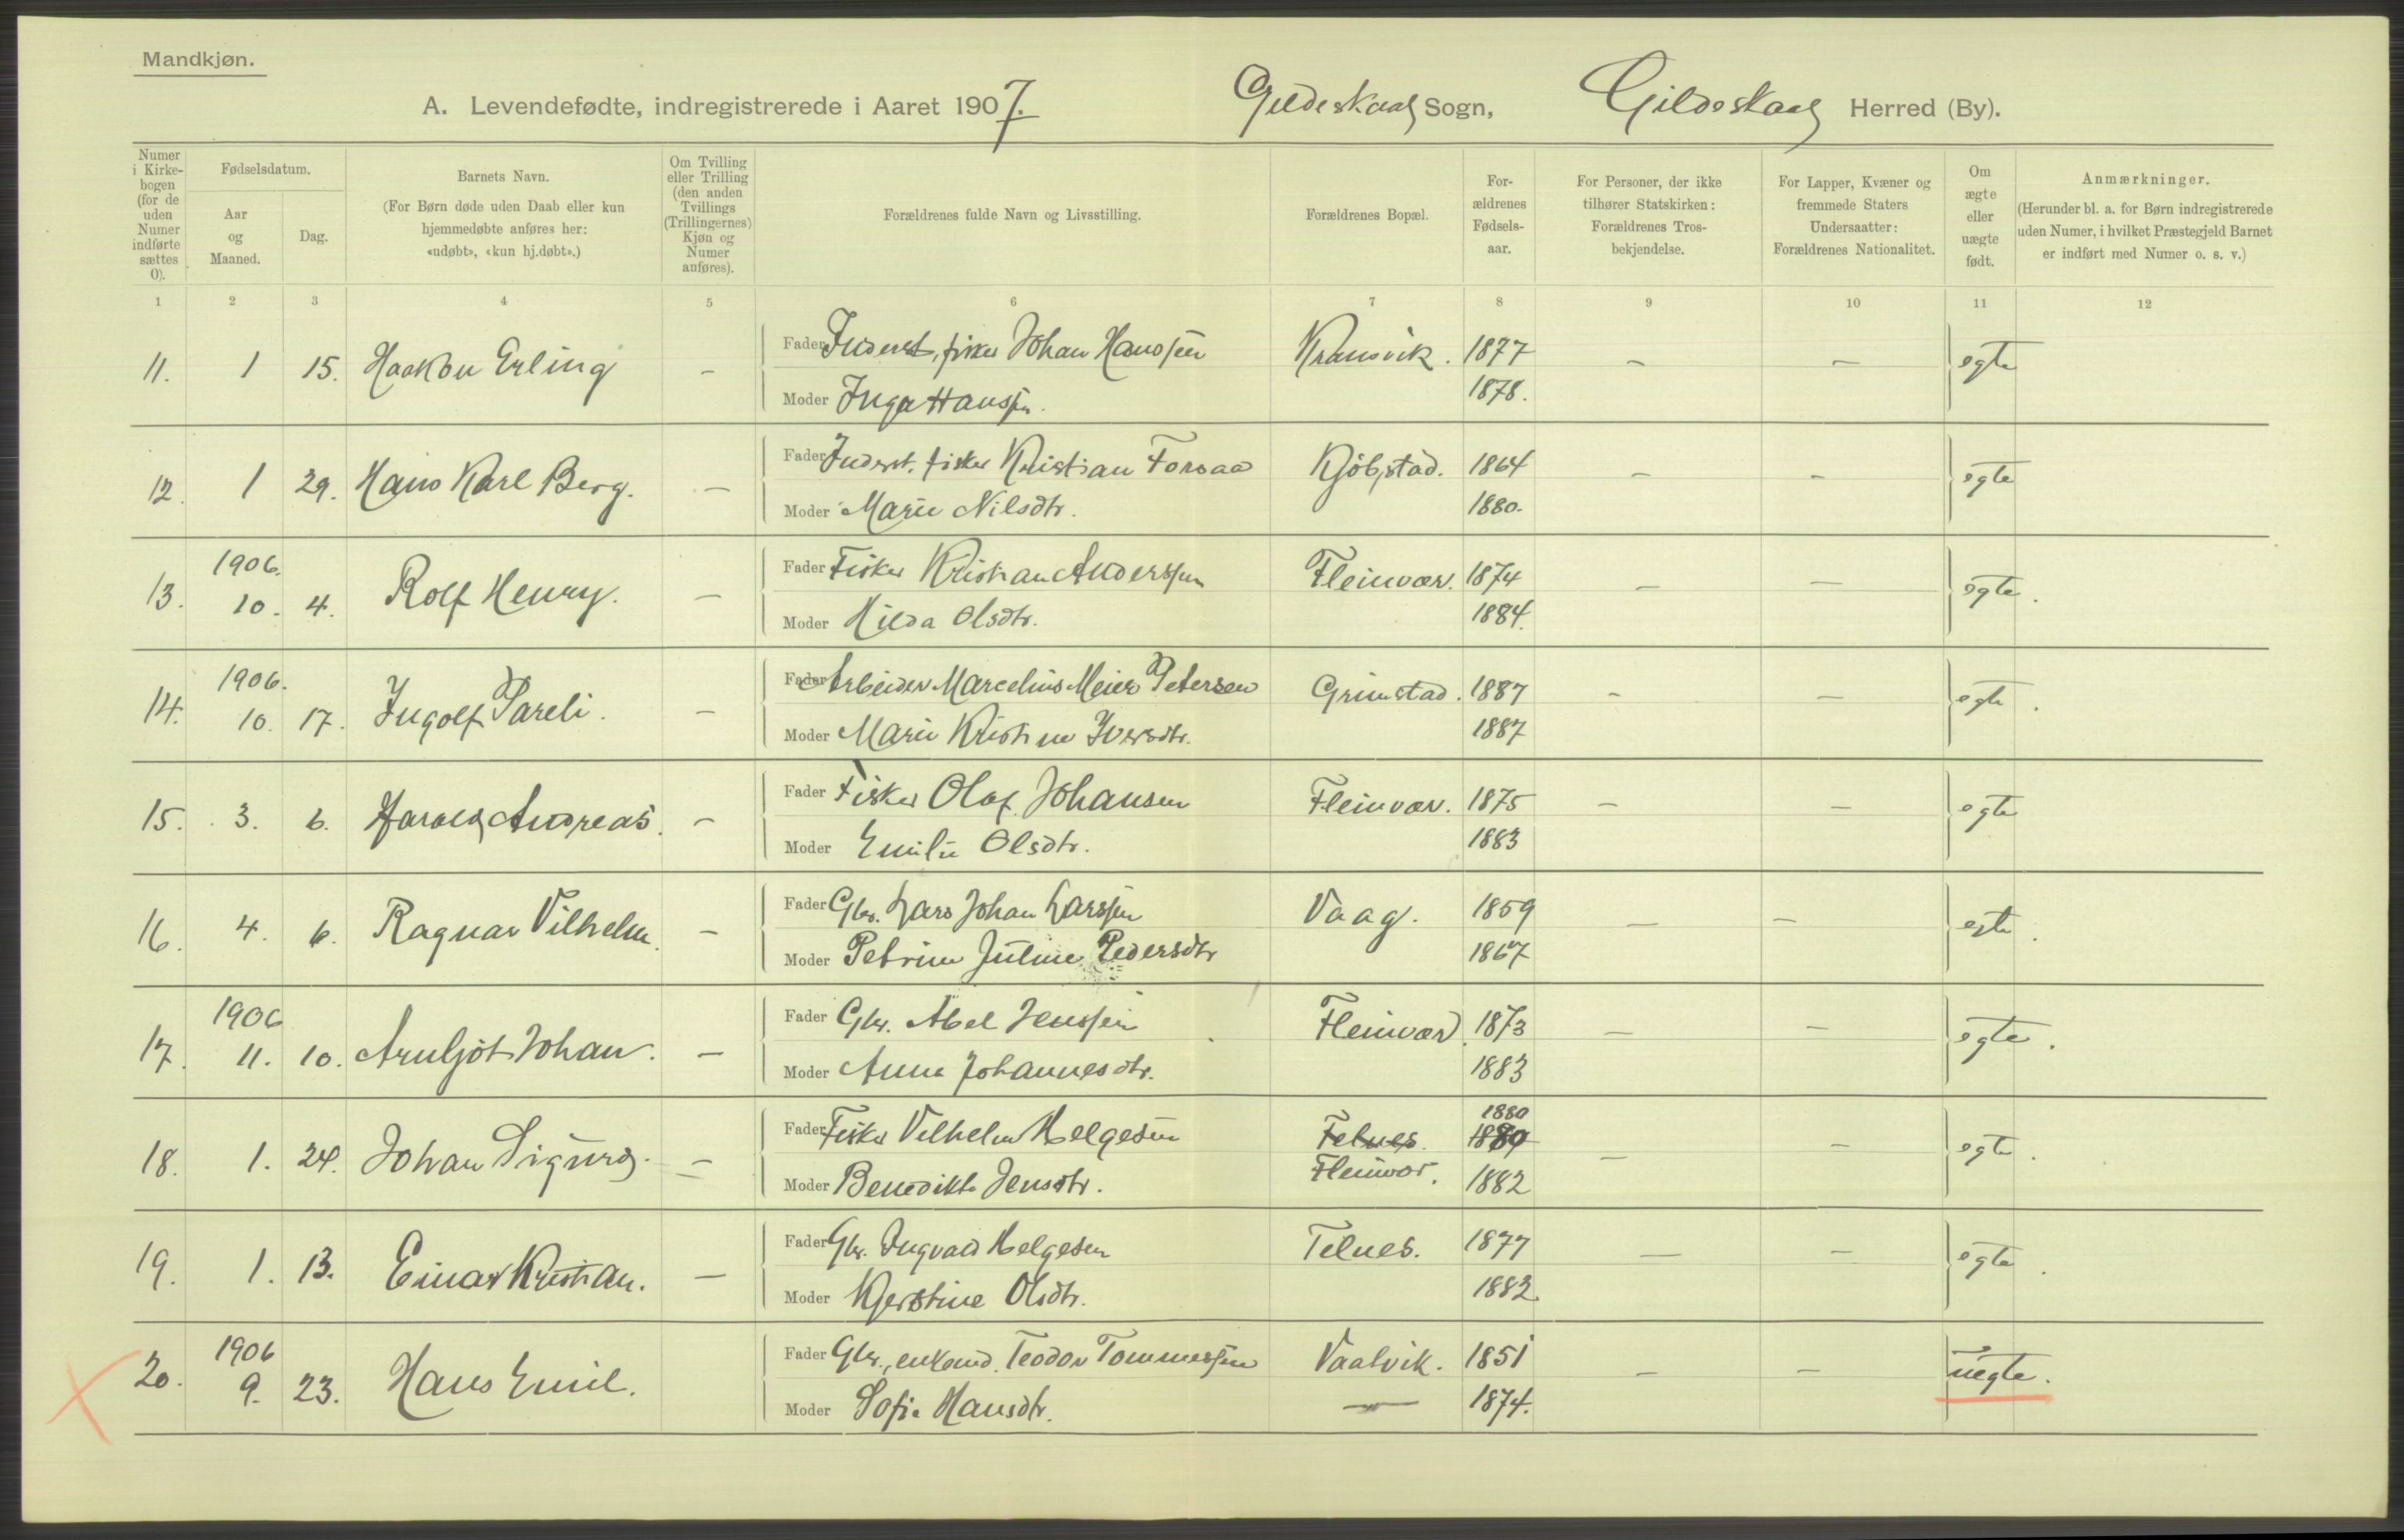 Mandkjøn.
A. Levendefødte, indregistrerede i Aaret 1907. Gildeskaal Sogn, Gildeskaal Herred (By).
Numer i Kirkebogen (for de uden Numer indførte sættes 0).
Fødselsdatum.
Aar og Maaned.
Dag.
Barnets Navn.
(For Børn døde uden Daab eller kun hjemmedøbte anføres her: «udøbt», «kun hj.døbt».)
Om Tvilling eller Trilling (den anden Tvillings (Trillingernes) Kjøn og Numer anføres).
Forældrenes fulde Navn og Livsstilling.
Forældrenes Bopæl.
Forældrenes Fødselsaar.
For Personer, der ikke tilhører Statskirken: Forældrenes Trosbekjendelse.
For Lapper, Kvæner og fremmede Staters Undersaatter: Forældrenes Nationalitet.
Om ægte eller uægte født.
Anmærkninger.
(Herunder bl. a. for Børn indregistrerede uden Numer, i hvilket Præstegjeld Barnet er indført med Numer o. s. v.)
1 2 3 4 5 6 7 8 9 10 11 12
11. 1 15. Haakon Erling - Fader Inderst, fisker Johan Hanssen Kransvik. 1877 - - egte
Moder Inga Hanssen. 1878.
12. 1 29. Hans Karl Berg. - Fader Inderst. fisker Kristian Forsaa Kjøbstad. 1864 - - egte
Moder Marie Nilsdtr. 1880.
13. 1906. 10. 4. Rolf Henry. - Fader Fisker Kristian Anderssen Fleinvær. 1874 - - egte.
Moder Hilda Olsdtr. 1884.
14. 1906. 10. 17. Ingolf Pareli. - Fader Arbeider Marcelius Meier Petersen Grimstad. 1887 - - egte.
Moder Marie Kristine Iversdtr. 1887
15. 3. 6. Harald Andreas. - Fader Fisker Olaf Johansen Fleinvær. 1875 - - egte
Moder Emilie Olsdtr. 1883
16. 4. 6. Ragnar Vilhelm. - Fader Gbr. Lars Johan Larssen Vaag. 1859 - - egte.
Moder Petrine Juline Pedersdtr 1867
17. 1906 11. 10. Arnljot Johan. - Fader Gbr. Abel Jenssen Fleinvær. 1873 - - egte.
Moder Anna Johannesdtr. 1883
18. 1. 24. Johan Sigurd. - Fader Fisker Vilhelm Helgesen Telnes. 1880 - - egte.
Moder Benedikte Jensdtr. Fleinvær. 1882
19. 1. 13. Einar Kristian. - Fader Gbr. Ingvald Helgesen Telnes. 1877 - - egte.
Moder Kjerstine Olsdtr. 1882.
20. 1906 9. 23. Hans Emil. Fader Gbr., enkemd. Teodor Tommessen Vaatvik. 1851 - - uegte.
Moder Sofie Hansdtr. - 1874.